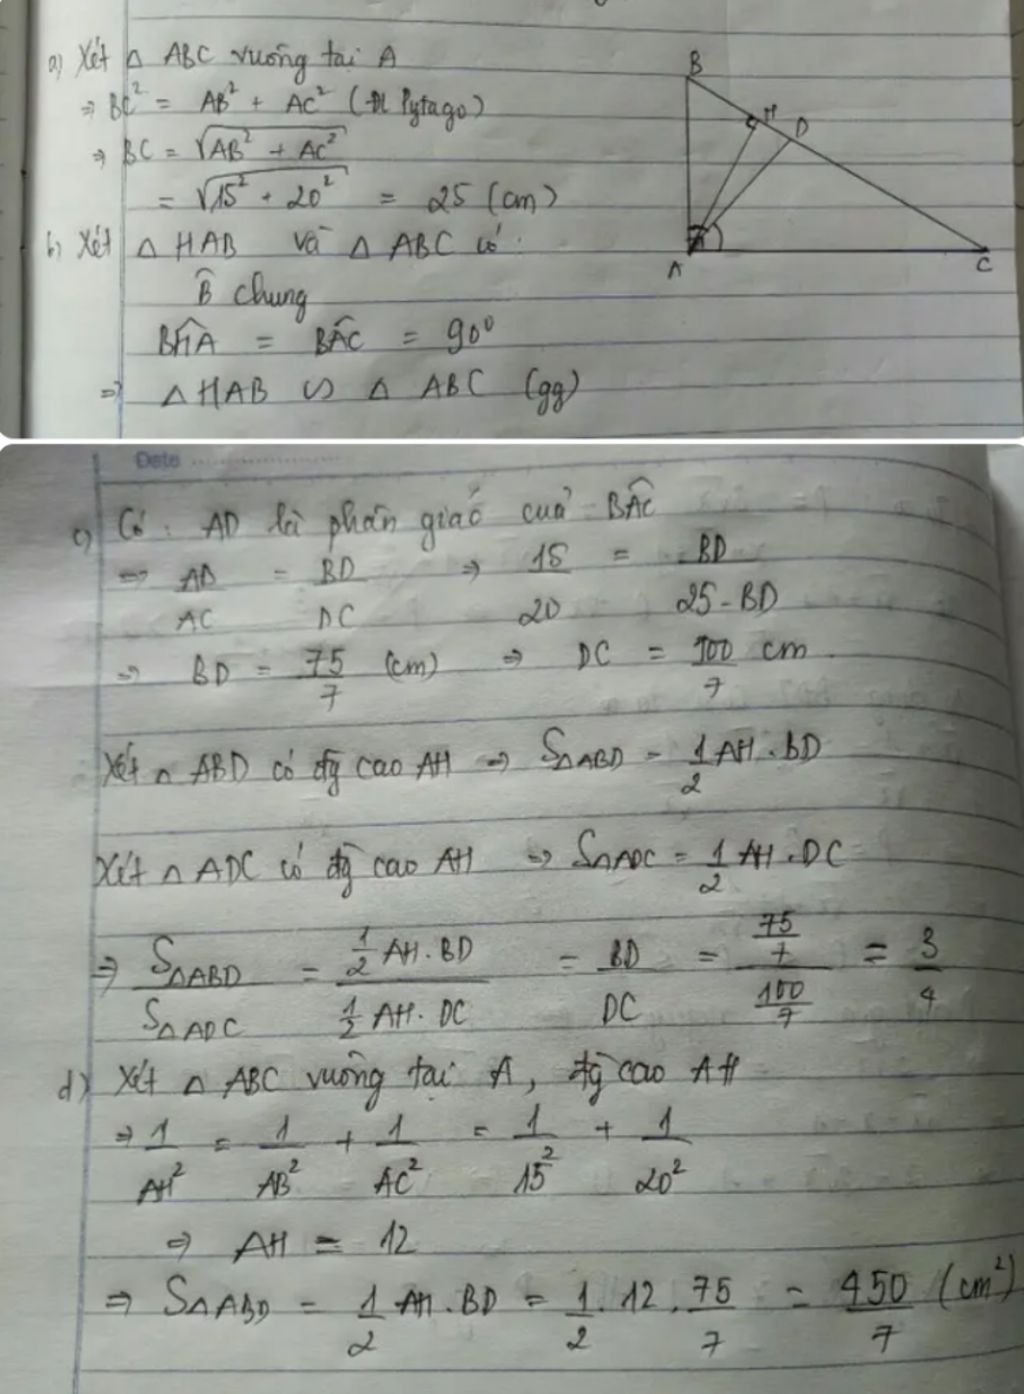 a) Xét △ ABC vuông tại A
⇒ BC² = AB² + AC² (ĐL Pytago)
⇒ BC = √AB² + AC²
= √15² + 20² = 25 (cm)
b) Xét △ HAB và △ ABC có :
B̂ chung
BĤA = BÂC = 90⁰
⇒ △ HAB ∽ △ ABC (gg)
B
H
D
A
C
Date
c) Có : AD là phân giác của BÂC
⇒ AB/AC = BD/DC ⇒ 15/20 = BD/25-BD
⇒ BD = 75/7 (cm) ⇒ DC = 100/7 cm
Xét △ ABD có đg cao AH ⇒ S△ABD = 1/2 AH . BD
Xét △ ADC có đg cao AH ⇒ S△ADC = 1/2 AH . DC
⇒ S△ABD/S△ADC = 1/2 AH . BD / 1/2 AH . DC = BD/DC = 75/7 / 100/7 = 3/4
d) Xét △ ABC vuông tại A, đg cao AH
⇒ 1/AH² = 1/AB² + 1/AC² = 1/15² + 1/20²
⇒ AH = 12
⇒ S△ABD = 1/2 AH . BD = 1/2 . 12 . 75/7 = 450/7 (cm²)